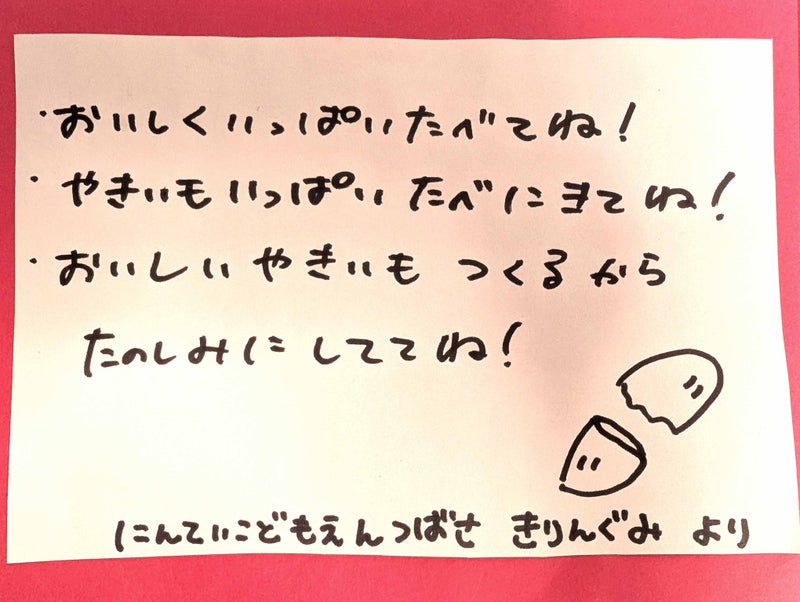 ・おいしくいっぱいたべてね！
・やきいもいっぱい たべにきてね！
・おいしいやきいも つくるから
たのしみにしててね！
にんていこどもえんつばさ きりんぐみ より